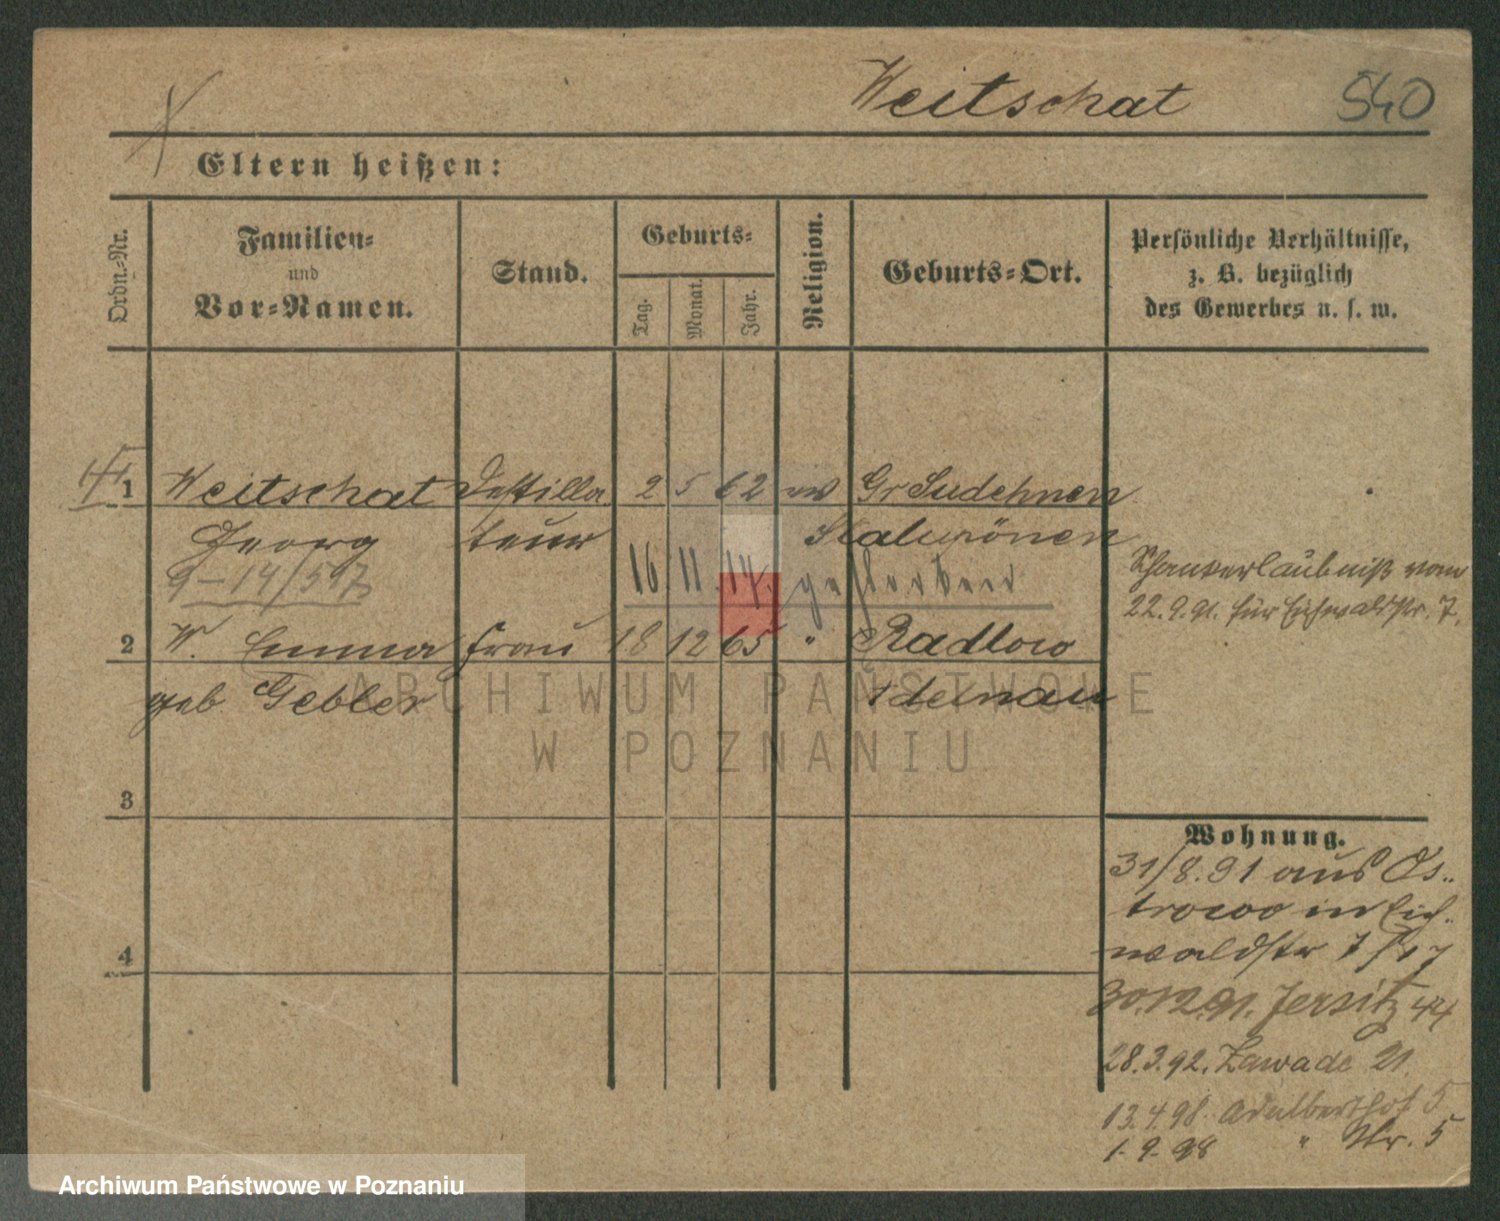 Weitschat 540
Eltern heißen:
Ordn.-Nr.
Familien-
und
Vor-Namen.
Stand.
Geburts-
Tag.
Monat.
Jahr.
Religion.
Geburts-Ort.
Persönliche Verhältnisse,
z. B. bezüglich
des Gewerbes u. s. w.
1 Weitschat Destilla 2 5 62 ev Gr Sudehnen
Georg teur Stalupönen
9-14/597 16 11 14. gestorben
Schankerlaubniß vom
22.9.91. für Eichwaldstr. 7.
2 W. Emma Frau 18 12 65 " Radlow
geb Gebler Adelnau
ARCHIWUM PAŃSTWOWE
W POZNANIU
3
4
Wohnung.
31/8.91 aus Os-
trowo in Eich-
waldstr 7
30.12.91. Jersitz 44
28.3.92. Zawade 21.
13.4.98. Adalberthof 5
1.9.98 " Str. 5
Archiwum Państwowe w Poznaniu